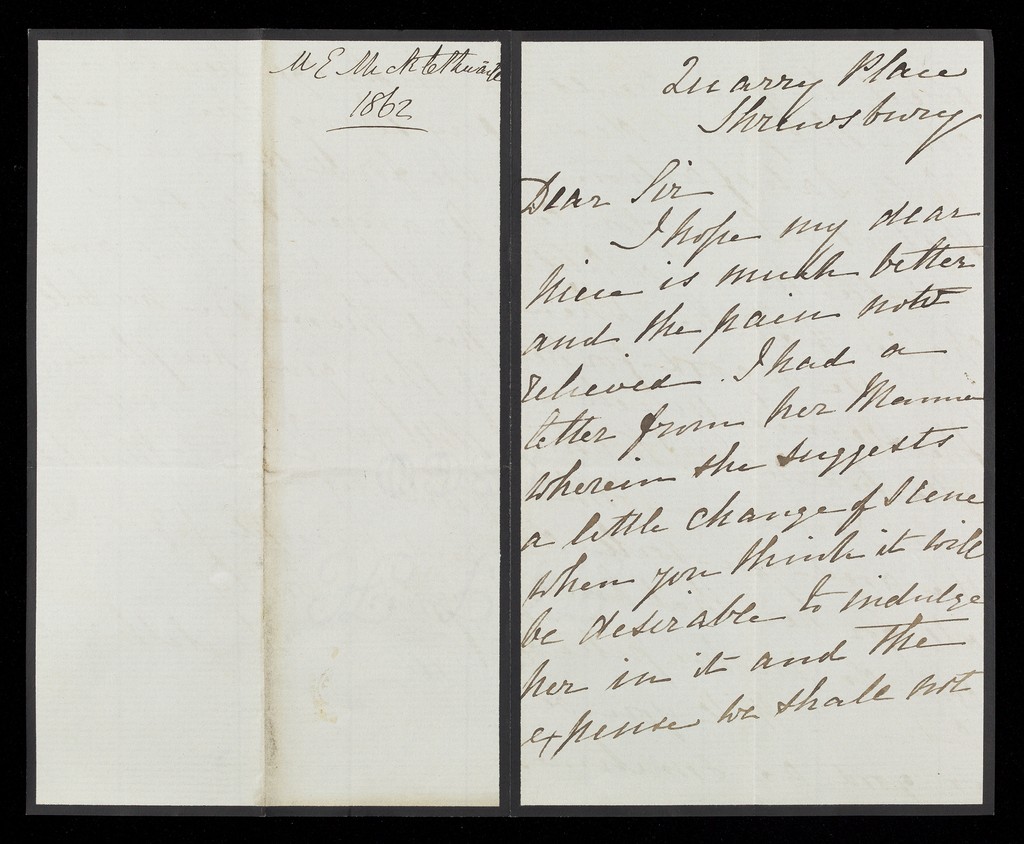 M E Micklethwaite
1862
Quarry Place
Shrewsbury
Dear Sir
I hope my dear
Niece is much better
and the pain now
relieved. I had a
letter from her Mamma
wherein she suggests
a little change of scene
when you think it will
be desirable to indulge
her in it and the
expense we shall not